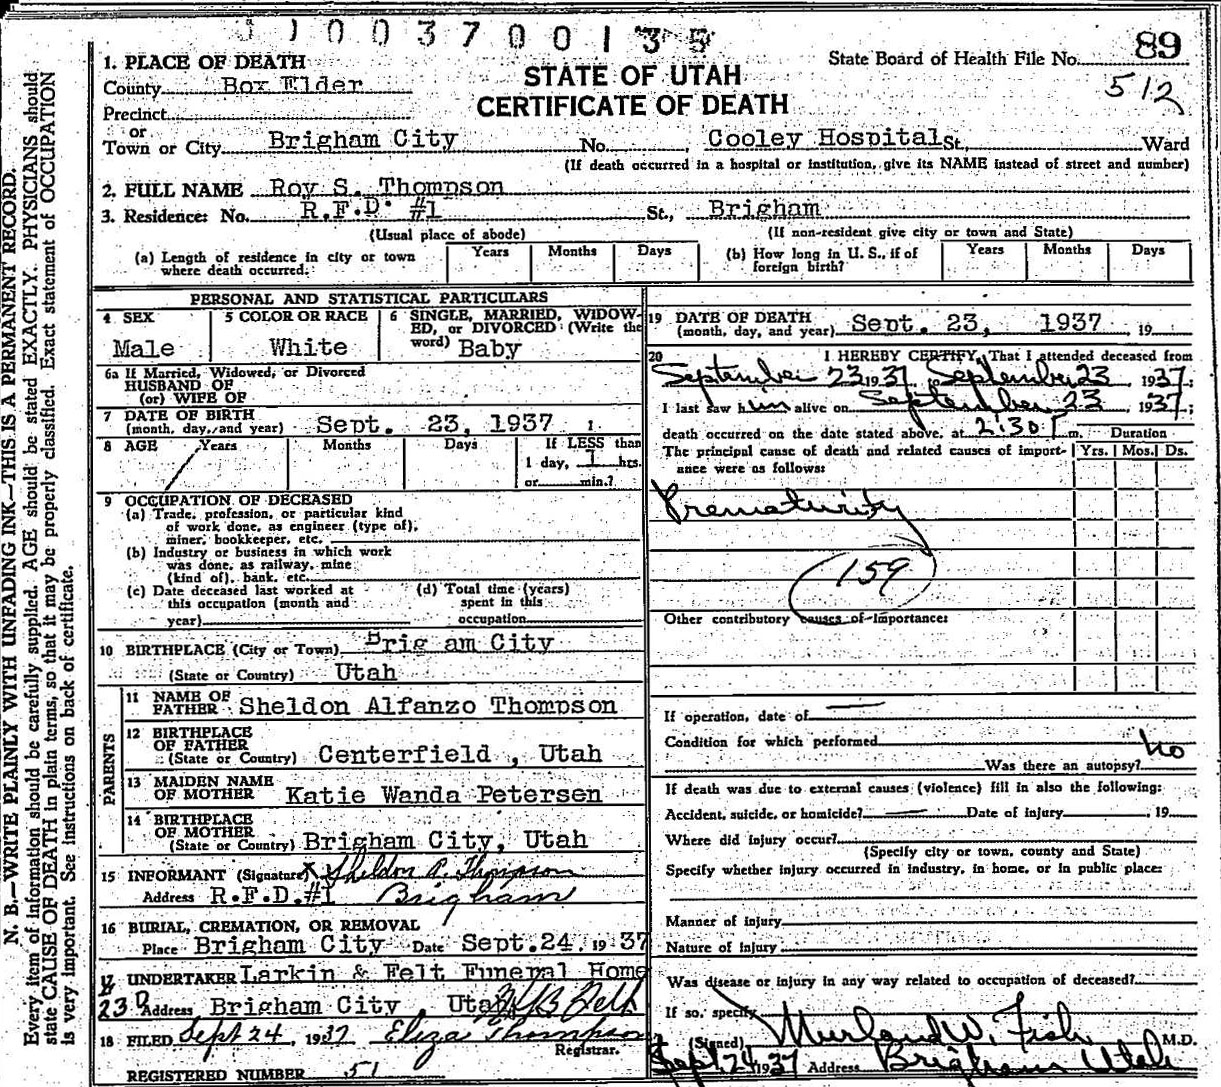 1003700135
State Board of Health File No. 89
512
1. PLACE OF DEATH
STATE OF UTAH
CERTIFICATE OF DEATH
County Box Elder
Precinct
or
Town or City Brigham City No. Cooley Hospital St., Ward
(If death occurred in a hospital or institution, give its NAME instead of street and number)
2. FULL NAME Roy S. Thompson
3. Residence: No. R.F.D. #1 St., Brigham
(Usual place of abode) (If non-resident give city or town and State)
(a) Length of residence in city or town where death occurred. Years Months Days (b) How long in U. S., if of foreign birth? Years Months Days
PERSONAL AND STATISTICAL PARTICULARS
4 SEX 5 COLOR OR RACE 6 SINGLE, MARRIED, WIDOW-
ED, or DIVORCED (Write the
word) Baby
Male White
6a If Married, Widowed, or Divorced
HUSBAND OF
(or) WIFE OF
7 DATE OF BIRTH
(month, day, and year) Sept. 23, 1937
8 AGE Years Months Days If LESS than
1 day, 1 hrs.
or min.?
9 OCCUPATION OF DECEASED
(a) Trade, profession, or particular kind
of work done, as engineer (type of),
miner, bookkeeper, etc.
(b) Industry or business in which work
was done, as railway, mine
(kind of), bank, etc.
(c) Date deceased last worked at
this occupation (month and
year)
(d) Total time (years)
spent in this
occupation
10 BIRTHPLACE (City or Town) Brig am City
(State or Country) Utah
PARENTS
11 NAME OF
FATHER Sheldon Alfanzo Thompson
12 BIRTHPLACE
OF FATHER
(State or Country) Centerfield , Utah
13 MAIDEN NAME
OF MOTHER Katie Wanda Petersen
14 BIRTHPLACE
OF MOTHER
(State or Country) Brigham City, Utah
15 INFORMANT (Signature) x Sheldon A. Thompson
Address R.F.D.#1 Brigham
16 BURIAL, CREMATION, OR REMOVAL
Place Brigham City Date Sept.24, 1937
17 UNDERTAKER Larkin & Felt Funeral Home
23D Address Brigham City, Utah
18 FILED Sept 24, 1937 Eliza Thompson
Registrar.
REGISTERED NUMBER 51
19 DATE OF DEATH
(month, day, and year) Sept. 23, 1937 , 19
20 I HEREBY CERTIFY, That I attended deceased from
September 23 1937, to September 23 1937;
I last saw him alive on September 23, 1937;
death occurred on the date stated above, at 2:30 P m. Duration
The principal cause of death and related causes of import-
ance were as follows: Yrs. Mos. Ds.
Prematurity
159
Other contributory causes of importance:
If operation, date of
Condition for which performed
Was there an autopsy? no
If death was due to external causes (violence) fill in also the following:
Accident, suicide, or homicide? Date of injury , 19
Where did injury occur?
(Specify city or town, county and State)
Specify whether injury occurred in industry, in home, or in public place:
Manner of injury
Nature of injury
Was disease or injury in any way related to occupation of deceased?
If so, specify
(Signed) Murland W. Fish M.D.
Sept. 24 1937 Address Brigham Utah
N. B.—WRITE PLAINLY WITH UNFADING INK—THIS IS A PERMANENT RECORD.
Every item of information should be carefully supplied. AGE should be stated EXACTLY. PHYSICIANS should
state CAUSE OF DEATH in plain terms, so that it may be properly classified. Exact statement of OCCUPATION
is very important. See instructions on back of certificate.